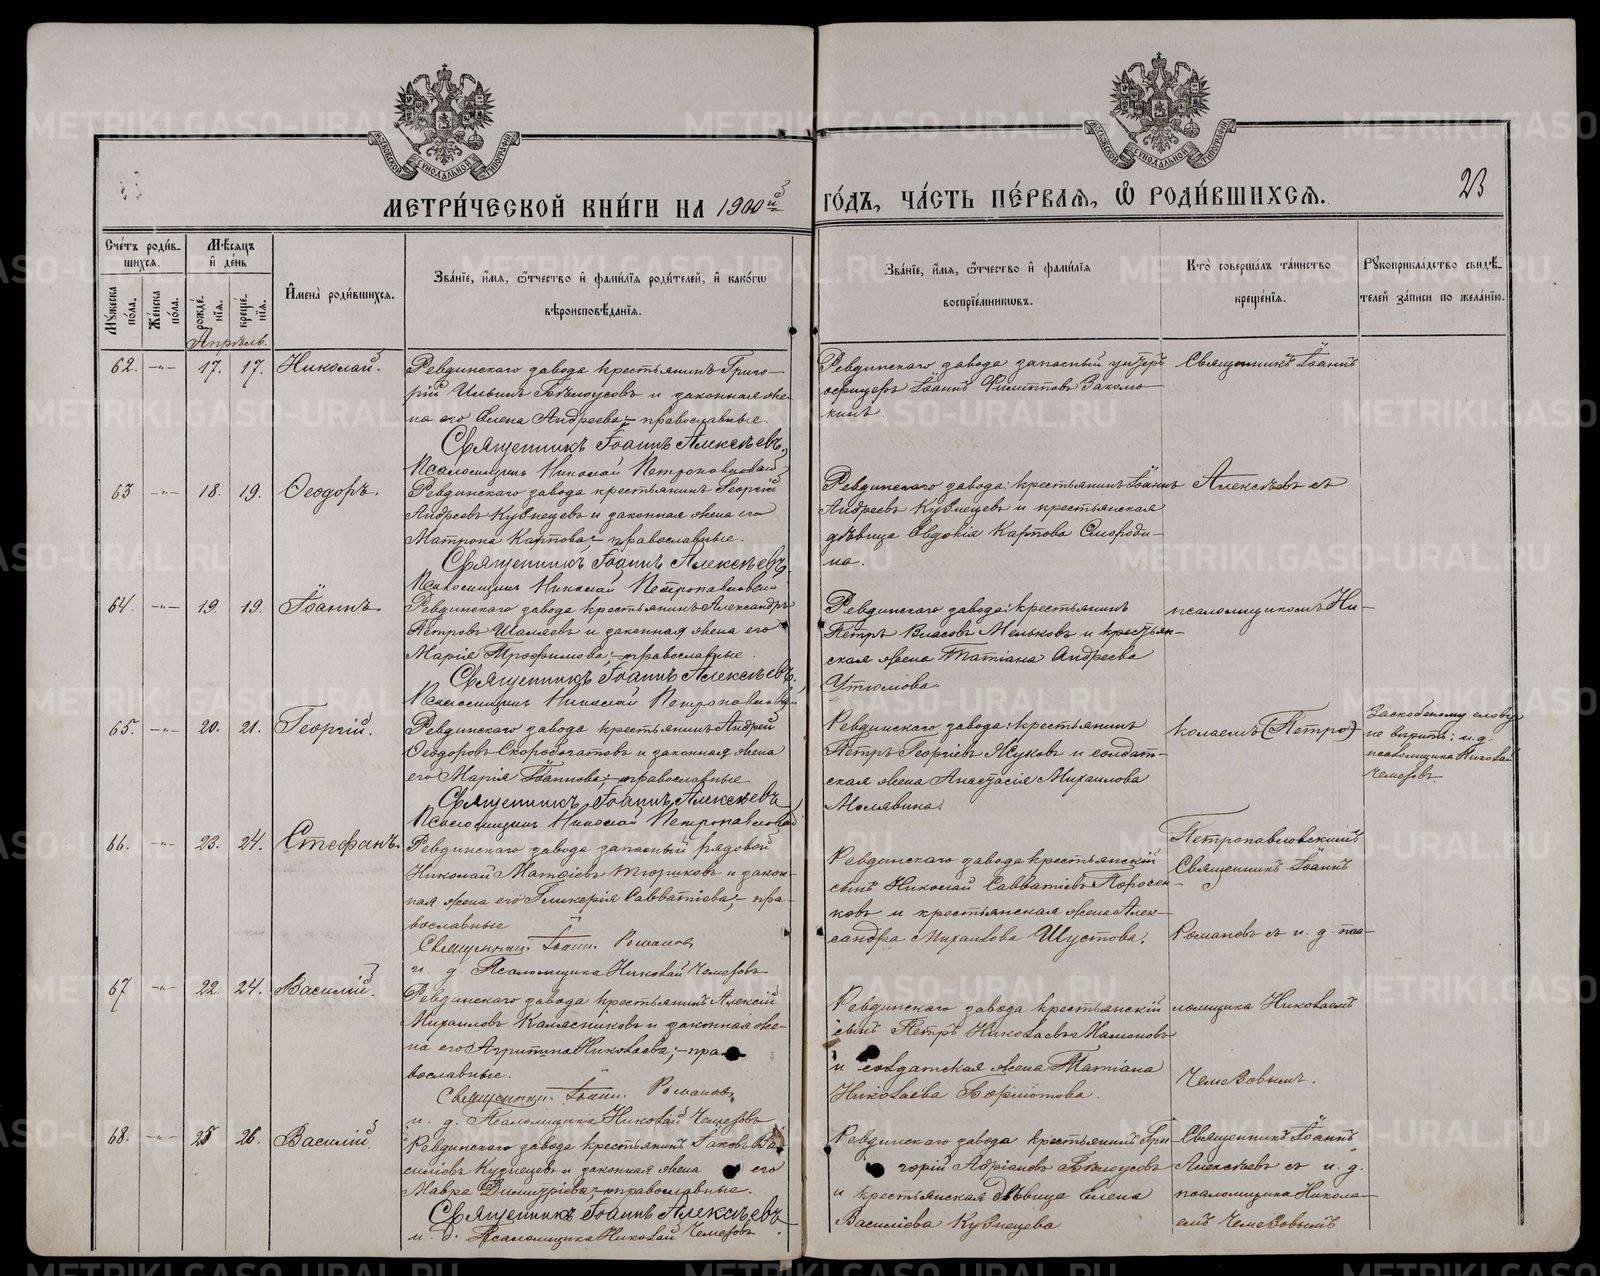 МЕТРИ́ЧЕСКОЙ КНИ́ГИ НА 1900й ГО́ДЪ, ЧА́СТЬ ПЕ́РВАѦ, Ѽ РОДИ́ВШИХСѦ.
23
Сче́тъ роди́в-
шихсѧ.
Мꙋжеска по́ла.
Же́нска по́ла.
Мѣ́сѧцъ
и҆ де́нь
рожде́нїѧ.
креще́нїѧ.
И҆мена̀ роди́вшихсѧ.
Зва́нїе, и҆́мѧ, ѻ҆́тчество и҆ фами́лїѧ роди́телей, и҆ како́гѡ
вѣроисповѣ́данїѧ.
Зва́нїе, и҆́мѧ, ѻ҆́тчество и҆ фами́лїѧ
воспрїе́мникѡвъ.
Кто̀ соверша́лъ та́инство
креще́нїѧ.
Рꙋкоприкла́дство свидѣ́-
телей за́писи по жела́нїю.
Апрѣль.
62. —"— 17. 17. Николай.
Ревдинскаго завода крестьянинъ Григо-
рій Ильинъ Бѣлоусовъ и законная же-
на его Елена Андреева; – православные.
Священникъ Іоаннъ Алексѣевъ.
Псаломщикъ Николай Петропавловскій
Ревдинскаго завода запасный унтеръ
офицеръ Іоаннъ Филипповъ
Священникъ Іоаннъ
63 —"— 18. 19. Ѳеодоръ.
Ревдинскаго завода крестьянинъ Георгій
Андреевъ Кузнецевъ и законная жена его
Матрона Карпова; – православные.
Священникъ Іоаннъ Алексѣевъ
Псаломщикъ Николай Петропавловскій
Ревдинскаго завода: крестьянинъ Іоаннъ
Андреевъ Кузнецевъ и крестьянская
дѣвица Евдокія Карпова Смороди-
на.
Алексѣевъ съ
64. —"— 19. 19. Іоаннъ.
Ревдинскаго завода крестьянинъ Александръ
Петровъ Шаляевъ и законная жена его
Марія Трофимова; – православные.
Священникъ Іоаннъ Алексѣевъ.
Псаломщикъ Николай Петропавловскій
Ревдинскаго завода: крестьянинъ
Петръ Власовъ Мельковъ и крестьян-
ская жена Татіана Андреева
Утюмова.
псаломщикомъ Ни-
65. —"— 20. 21. Георгій.
Ревдинскаго завода крестьянинъ Андрей
Ѳеодоровъ Скоробогатовъ и законная жена
его Марія Іоаннова; – православные
Священникъ Іоаннъ Алексѣевъ
Псаломщикъ Николай Петропавловскій
Ревдинскаго завода: крестьянинъ
Петръ Георгіевъ Жуковъ и солдат-
ская жена Анастасія Михаилова
Малявина.
колаемъ (Петро)
не вѣрить: и. д.
псаломщика Николай
Чемезовъ.
66. —"— 23. 24. Стефанъ.
Ревдинскаго завода запасный рядовой
Николай Матѳіевъ Тюриковъ и закон-
ная жена его Гликерія Савватіева; – пра-
вославные
Священникъ Іоаннъ Романовъ
и. д. Псаломщика Николай Чемезовъ
Ревдинскаго завода крестьянскій
сынъ Николай Савватіевъ Поросен-
ковъ и крестьянская жена Алек-
сандра Михаилова Шустова.
Петропавловскимъ
Священникъ Іоаннъ
Романовъ съ и. д. пса-
67 —"— 22. 24. Василій.
Ревдинскаго завода крестьянинъ Алексій
Михаиловъ Калясниковъ и законная же-
на его Агриппина Николаева; – пра-
вославные.
Священникъ Іоаннъ Романовъ
и. д. Псаломщика Николай Чемезовъ
Ревдинскаго завода крестьянскій
сынъ Петръ Николаевъ Мамоновъ
и солдатская жена Татіана
Николаева
ломщика Николаемъ
Чемезовымъ.
68. —"— 25 26. Василій.
Ревдинскаго завода крестьянинъ Іаковъ Ва-
силіевъ Кузнецевъ и законная жена его
Мавра Димитріева; – православные.
Священникъ Іоаннъ Алексѣевъ
и. д. Псаломщика Николай Чемезовъ
Ревдинскаго завода крестьянинъ Гри
горій Адріановъ Бѣлоусовъ
и крестьянская дѣвица Елена
Василіева Кузнецева
Священникъ Іоаннъ
Алексѣевъ съ и. д.
псаломщика Никола-
емъ Чемезовымъ
METRIKI.GASO-URAL.RU